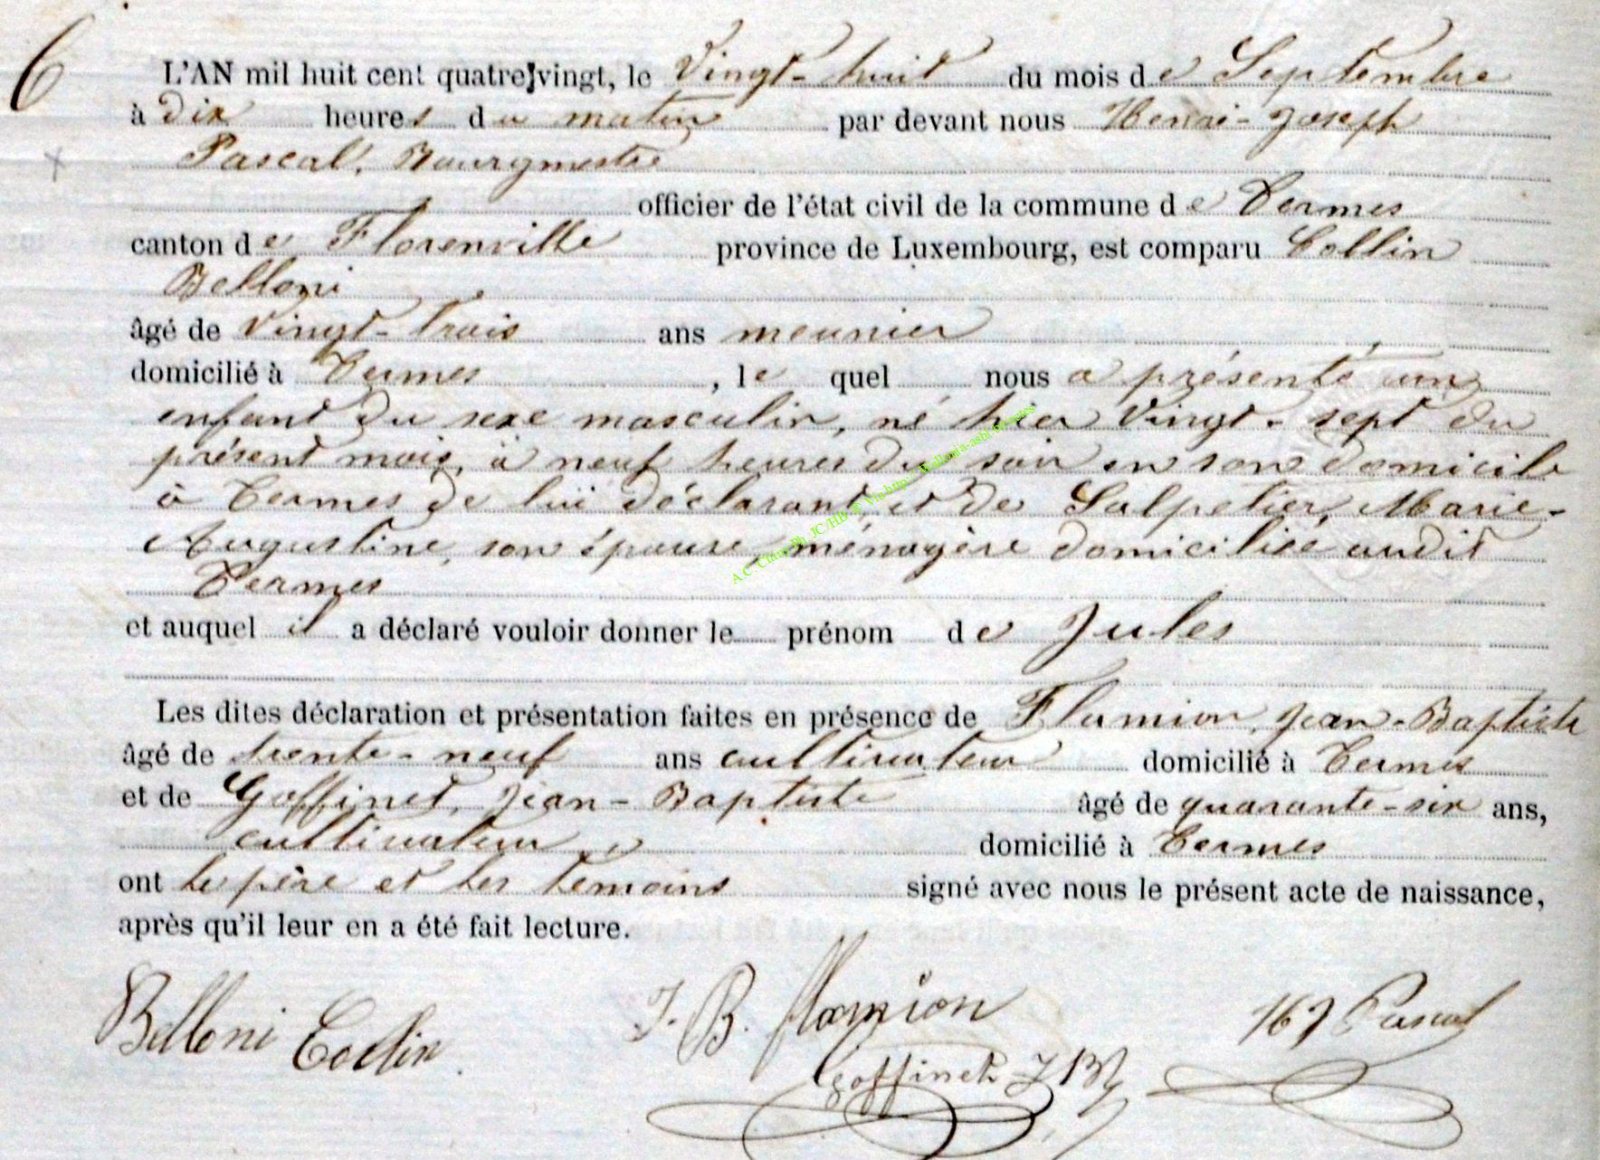 6
L'AN mil huit cent quatre vingt, le Vingt-huit du mois de Septembre
à dix heures du matin par devant nous Henri-Joseph
Pascal, Bourgmestre
officier de l'état civil de la commune de Termes
canton de Florenville province de Luxembourg, est comparu Collin
Belloni
âgé de Vingt-trois ans meunier
domicilié à Termes, le quel nous a présenté un
enfant du sexe masculin, né hier Vingt-sept du
présent mois, à neuf heures du soir en son domicile
à Termes de lui déclarant, et de Salpetier, Marie-
Augustine, son épouse, ménagère domiciliée audit
Termes
et auquel il a déclaré vouloir donner le prénom de Jules
Les dites déclaration et présentation faites en présence de Flamion, Jean-Baptiste
âgé de trente-neuf ans cultivateur domicilié à Termes
et de Goffinet, Jean-Baptiste âgé de quarante-six ans,
cultivateur, domicilié à Termes
ont le père et les témoins signé avec nous le présent acte de naissance,
après qu'il leur en a été fait lecture.
Belloni Collin. J. B. flamion HJ Pascal
Goffinet J B